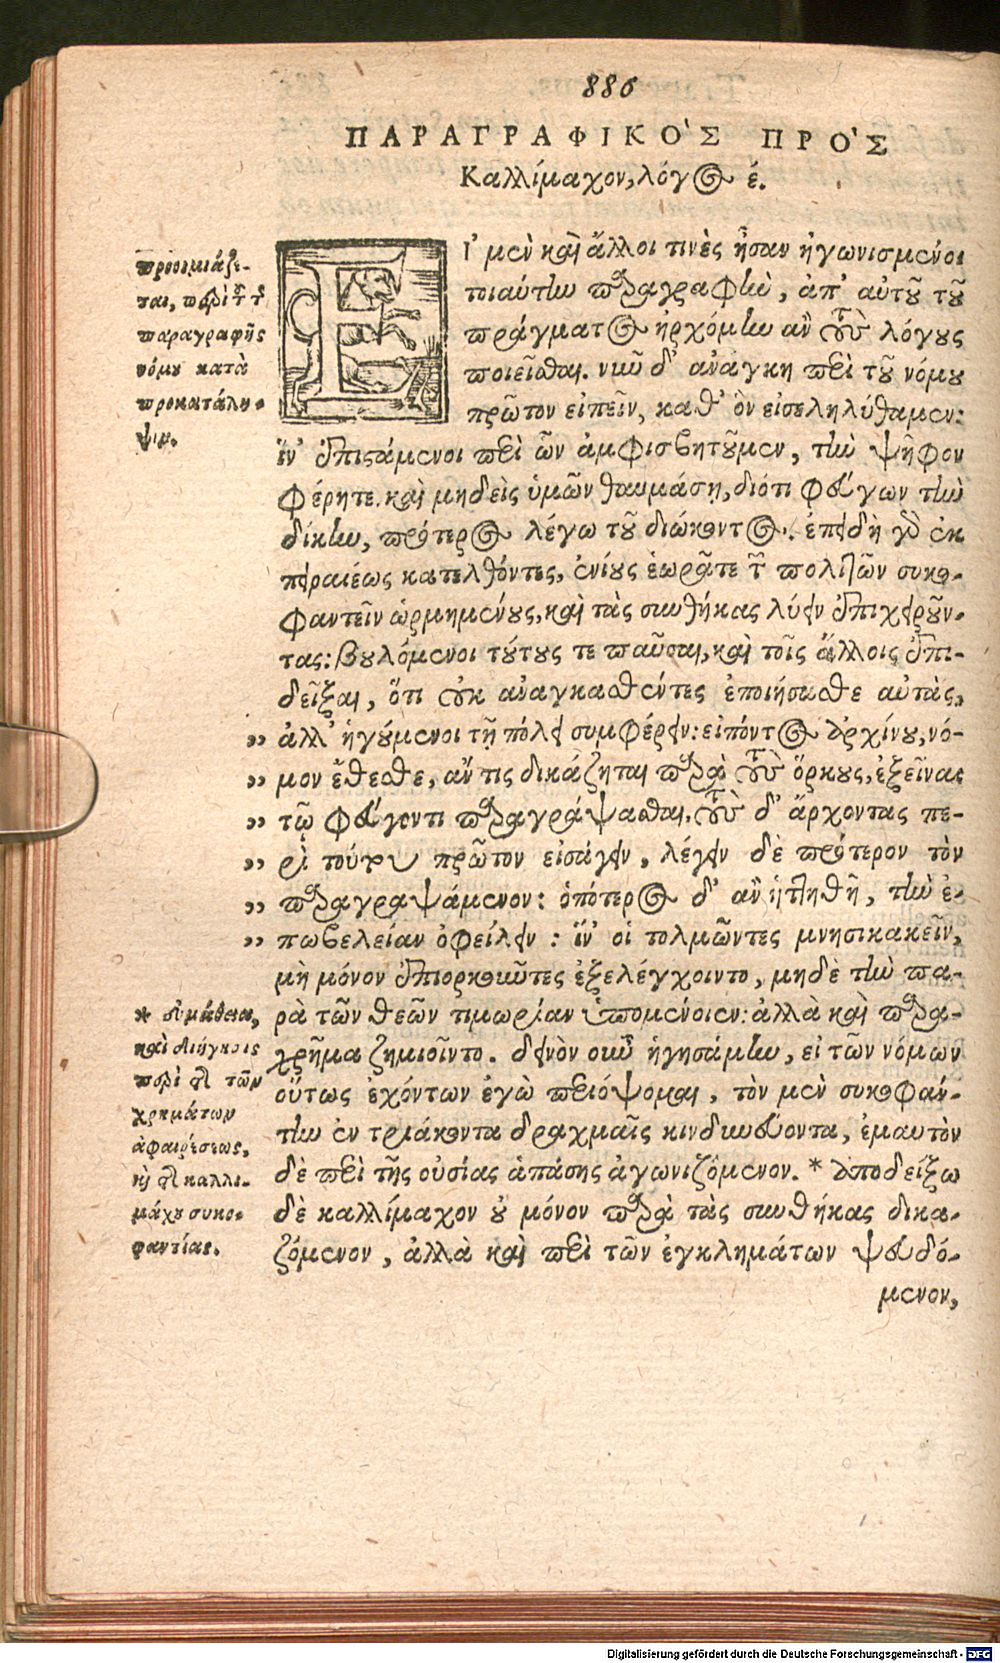 886
ΠΑΡΑΓΡΑΦΙΚΟ'Σ ΠΡΟ'Σ
Καλλίμαχον, λόγος έ.
προοιμιάζε-
ται, περὶ τ τ
παραγραφῆς
νόμου κατὰ
προκατάλη-
ψιν.
ΕΙ' μὲν καὶ ἄλλοι τινὲς ἦσαν ἠγωνισμένοι
τοιαύτην παραγραφὴν, ἀπ' αὐτοῦ τοῦ
πράγματος ἠρχόμην ἂν τοὺς λόγους
ποιεῖσθαι. νῦν δ' ἀνάγκη περὶ τοῦ νόμου
πρῶτον εἰπεῖν, καθ' ὃν εἰσεληλύθαμεν:
ἵν' ἐπιστάμενοι περὶ ὧν ἀμφισβητοῦμεν, τὴν ψῆφον
φέρητε. καὶ μηδεὶς ὑμῶν θαυμάσῃ, διότι φεύγων τὴν
δίκην, πρότερος λέγω τοῦ διώκοντος. ἐπειδὴ γὰρ ἐκ
πειραιέως κατελθόντες, ἐνίους ἑωρᾶτε τῶν πολιτῶν συκο-
φαντεῖν ὡρμημένους, καὶ τὰς συνθήκας λύειν ἐπιχειροῦν-
τας: βουλόμενοι τούτους τε παῦσαι, καὶ τοῖς ἄλλοις ἐπι-
δεῖξαι, ὅτι οὐκ ἀναγκασθέντες ἐποιήσασθε αὐτὰς,
„ ἀλλ' ἡγούμενοι τῇ πόλει συμφέρειν: εἰπόντος ἀρχίνου, νό-
„ μον ἔθεσθε, ἄν τις δικάζηται παρὰ τοὺς ὅρκους, ἐξεῖναι
„ τῷ φεύγοντι παραγράψασθαι. τοὺς δ' ἄρχοντας πε-
„ ρὶ τούτου πρῶτον εἰσάγειν, λέγειν δὲ πρότερον τὸν
„ παραγραψάμενον: ὁπότερος δ' ἂν ἡττηθῇ, τὴν ἐ-
„ πωβελείαν ὀφείλειν: ἵν' οἱ τολμῶντες μνησικακεῖν,
μὴ μόνον ἐπιορκοῦντες ἐξελέγχοιντο, μηδὲ τὴν πα-
ρὰ τῶν θεῶν τιμωρίαν ὑπομένοιεν: ἀλλὰ καὶ παρα-
χρῆμα ζημιοῖντο. δεινὸν οὖν ἡγησάμην, εἰ τῶν νόμων
οὕτως ἐχόντων ἐγὼ περιόψομαι, τὸν μὲν συκοφάν-
την ἐν τριάκοντα δραχμαῖς κινδυνεύοντα, ἐμαυτὸν
δὲ περὶ τῆς οὐσίας ἁπάσης ἀγωνιζόμενον. * ἀποδείξω
δὲ καλλίμαχον οὐ μόνον παρὰ τὰς συνθήκας δικα-
ζόμενον, ἀλλὰ καὶ περὶ τῶν ἐγκλημάτων ψευδό-
μενον,
* εὐμάθεια,
καὶ διήγησις
περὶ τε τῶν
χρημάτων
ἀφαιρέσεως,
κὶ τῆς καλλι-
μάχου συκο-
φαντίας.
Digitalisierung gefördert durch die Deutsche Forschungsgemeinschaft - DFG